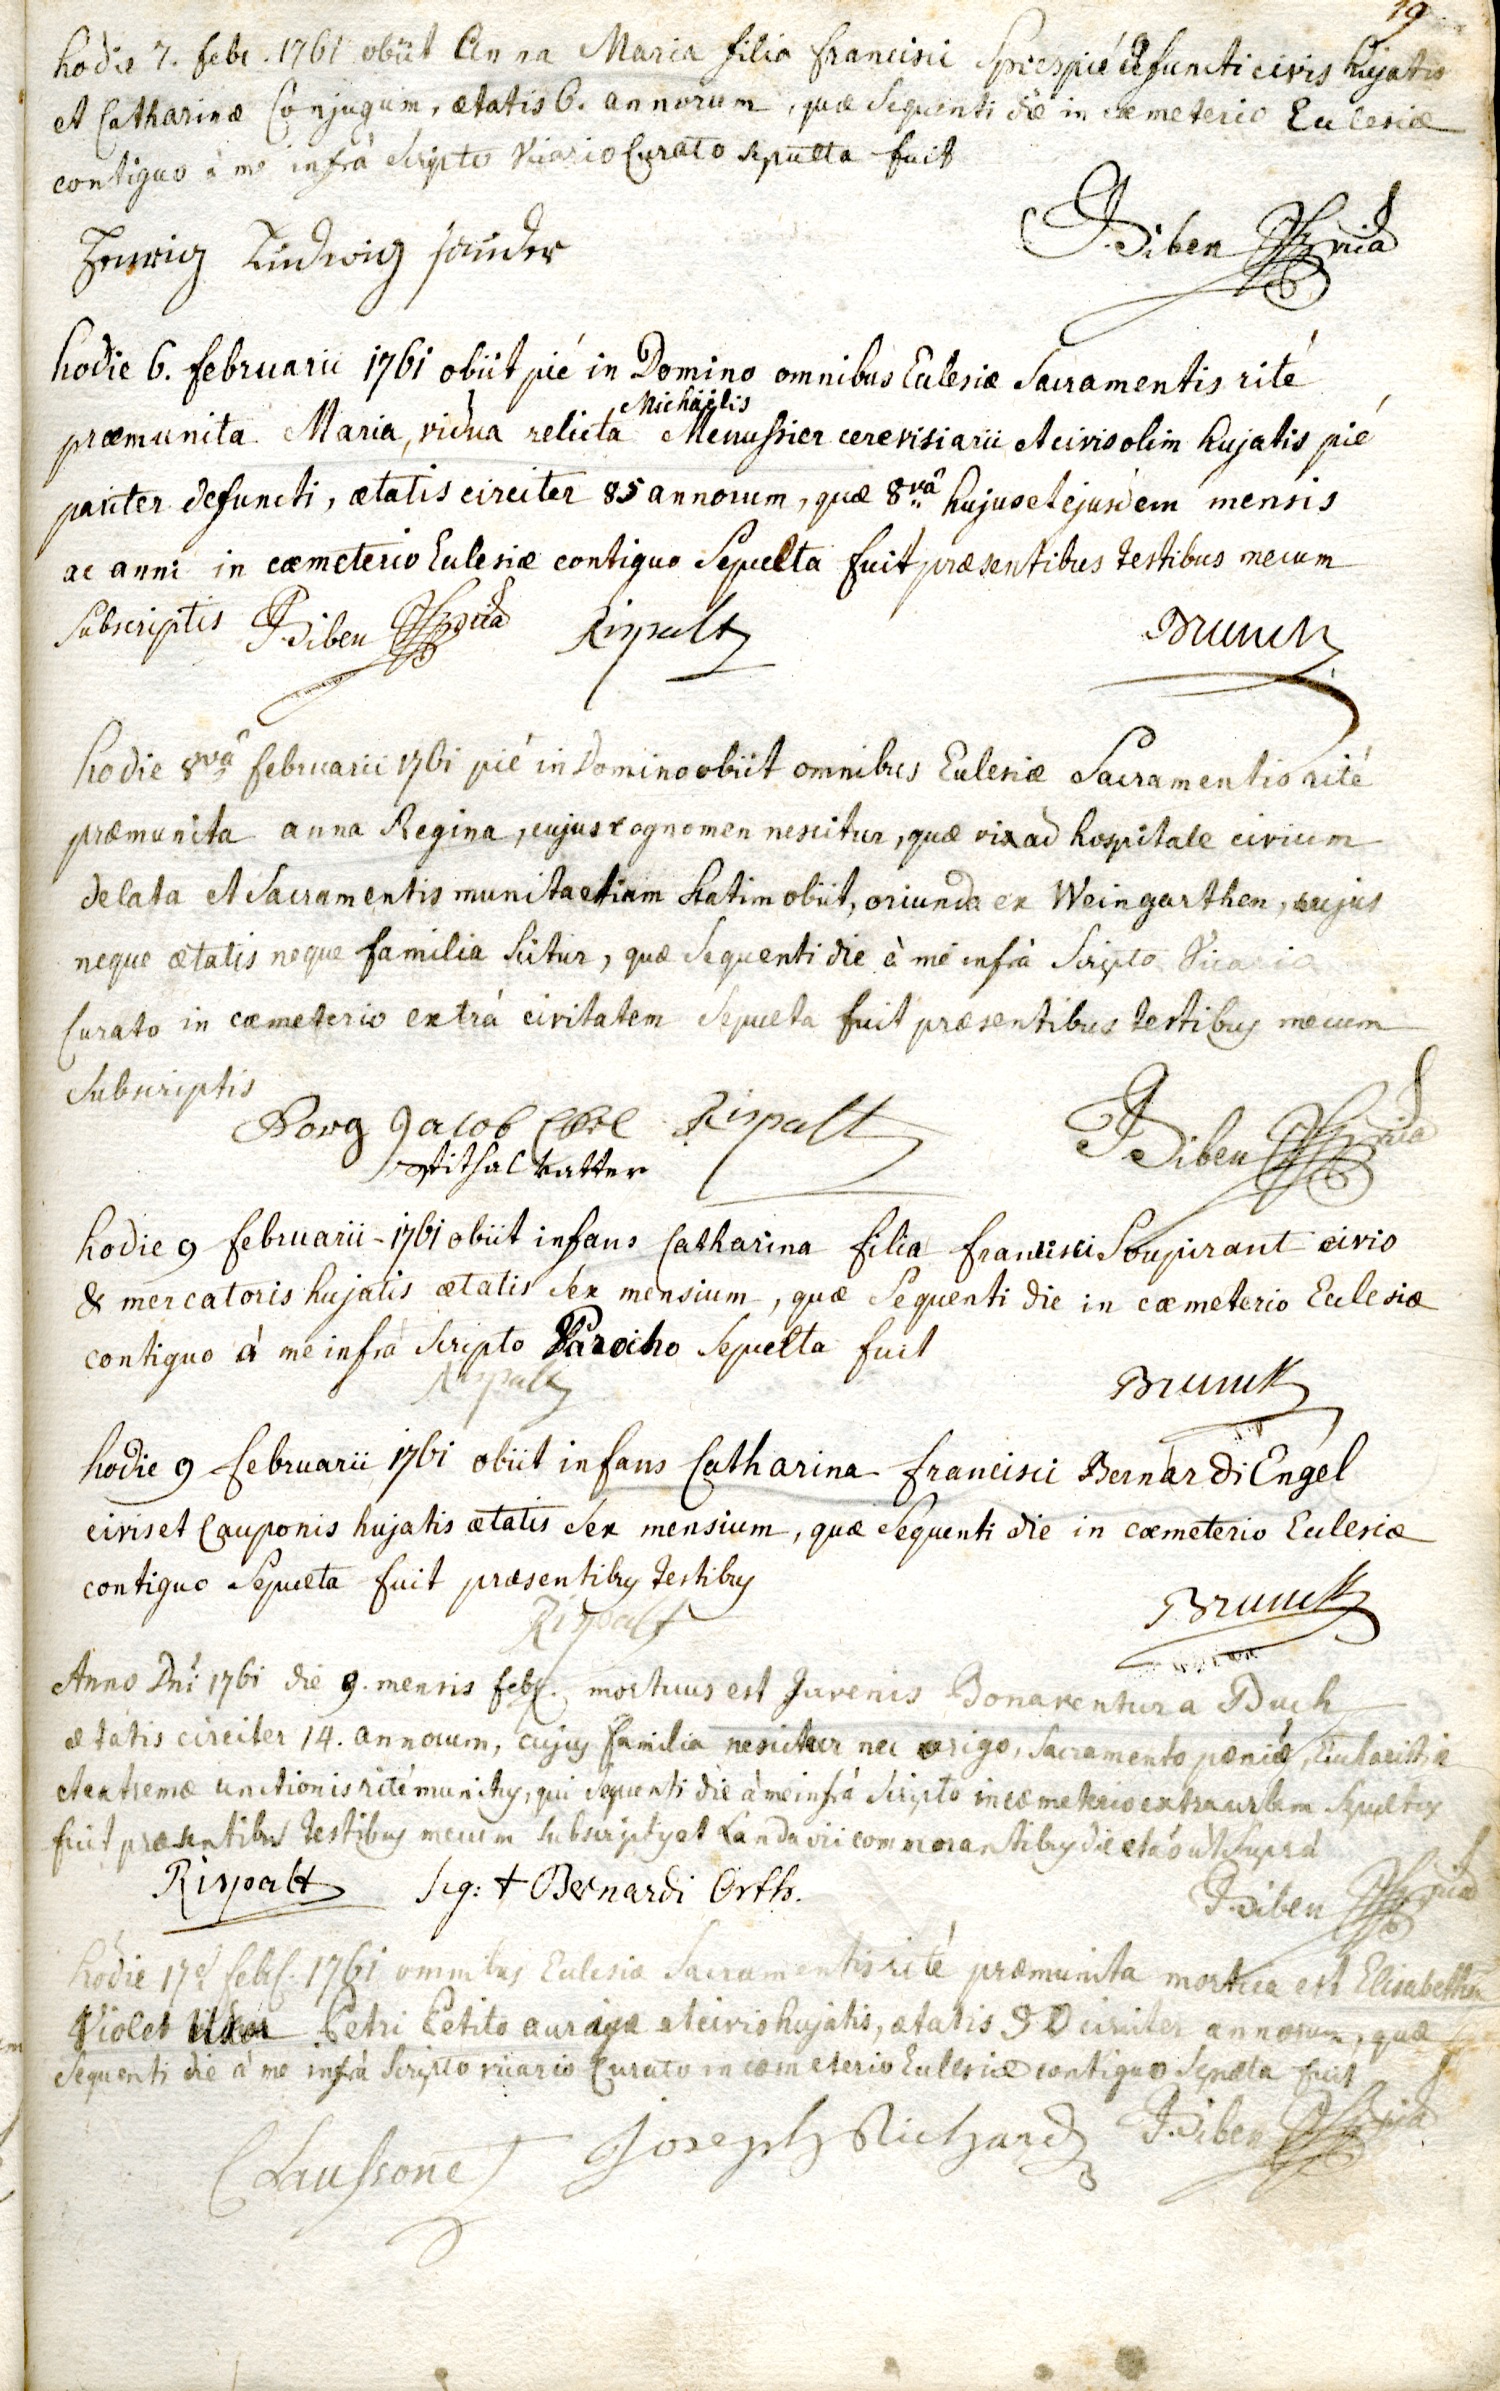 19
hodie 7. febr. 1761 obiit Anna Maria filia francisci Spies pié defuncti civis hujatis
et Catharinæ Conjugum, ætatis 6. annorum, quæ Sequenti die in cœmeterio Ecclesiæ
contiguo à me infrà Scripto Vicario Curato Sepulta fuit
Ludwig
J. Biben
hodie 6. februarii 1761 obiit pié in Domino omnibus Ecclesiæ Sacramentis rité
Michäelis
præmunita Maria, vidua relicta Menussier cerevisiarii et civis olim hujatis pié
pariter defuncti, ætatis circiter 85 annorum, quæ 8vâ hujus et ejusdem mensis
ac anni in cœmeterio Ecclesiæ contiguo Sepulta fuit præsentibus testibus mecum
Subscriptis J. Biben Rispalt Brunck
hodie 8vâ februarii 1761 pié in Domino obiit omnibus Ecclesiæ Sacramentis rité
præmunita anna Regina, cujus cognomen nescitur, quæ vix ad hospitale civium
delata et Sacramentis munita etiam Statim obiit, oriunda ex Weingarthen, cujus
neque ætatis neque familia Scitur, quæ Sequenti die à me infrà Scripto Vicario
Curato in cœmeterio extrà civitatem Sepulta fuit præsentibus testibus mecum
Subscriptis
Jacob Rispalt J. Biben
hodie 9 februarii - 1761 obiit infans Catharina filia francisci Soupirant civis
& mercatoris hujatis ætatis Sex mensium, quæ Sequenti die in cœmeterio Ecclesiæ
contiguo à me infrà Scripto Parocho Sepulta fuit
Rispalt Brunck
hodie 9 februarii 1761 obiit infans Catharina francisci Bernardi Engel
civis et Cauponis hujatis ætatis Sex mensium, quæ Sequenti die in cœmeterio Ecclesiæ
contiguo Sepulta fuit præsentibus testibus
Rispalt Brunck
Anno Dni 1761 die 9. mensis febr. mortuus est Juvenis Bonaventura Buch
ætatis circiter 14. annorum, cujus familia nescitur nec origo, Sacramento pœniæ, Eucharistiæ
et extremæ unctionis rité munitus, qui Sequenti die à me infrà Scripto in cœmeterio extra urbem Sepultus
fuit præsentibus testibus mecum Subscriptis et Landavii commorantibus die et aô ut Suprà
Rispalt Sig: + Bernardi Orth. J. Biben
hodie 17â febr. 1761 omnibus Ecclesiæ Sacramentis rité præmunita mortua est Elisabetha
Violet uxor Petri Petito aurigæ et civis hujatis, ætatis circiter annorum, quæ
Sequenti die à me infrà Scripto vicario Curato in cœmeterio Ecclesiæ contiguo Sepulta fuit
Laussone Joseph Richard J. Biben